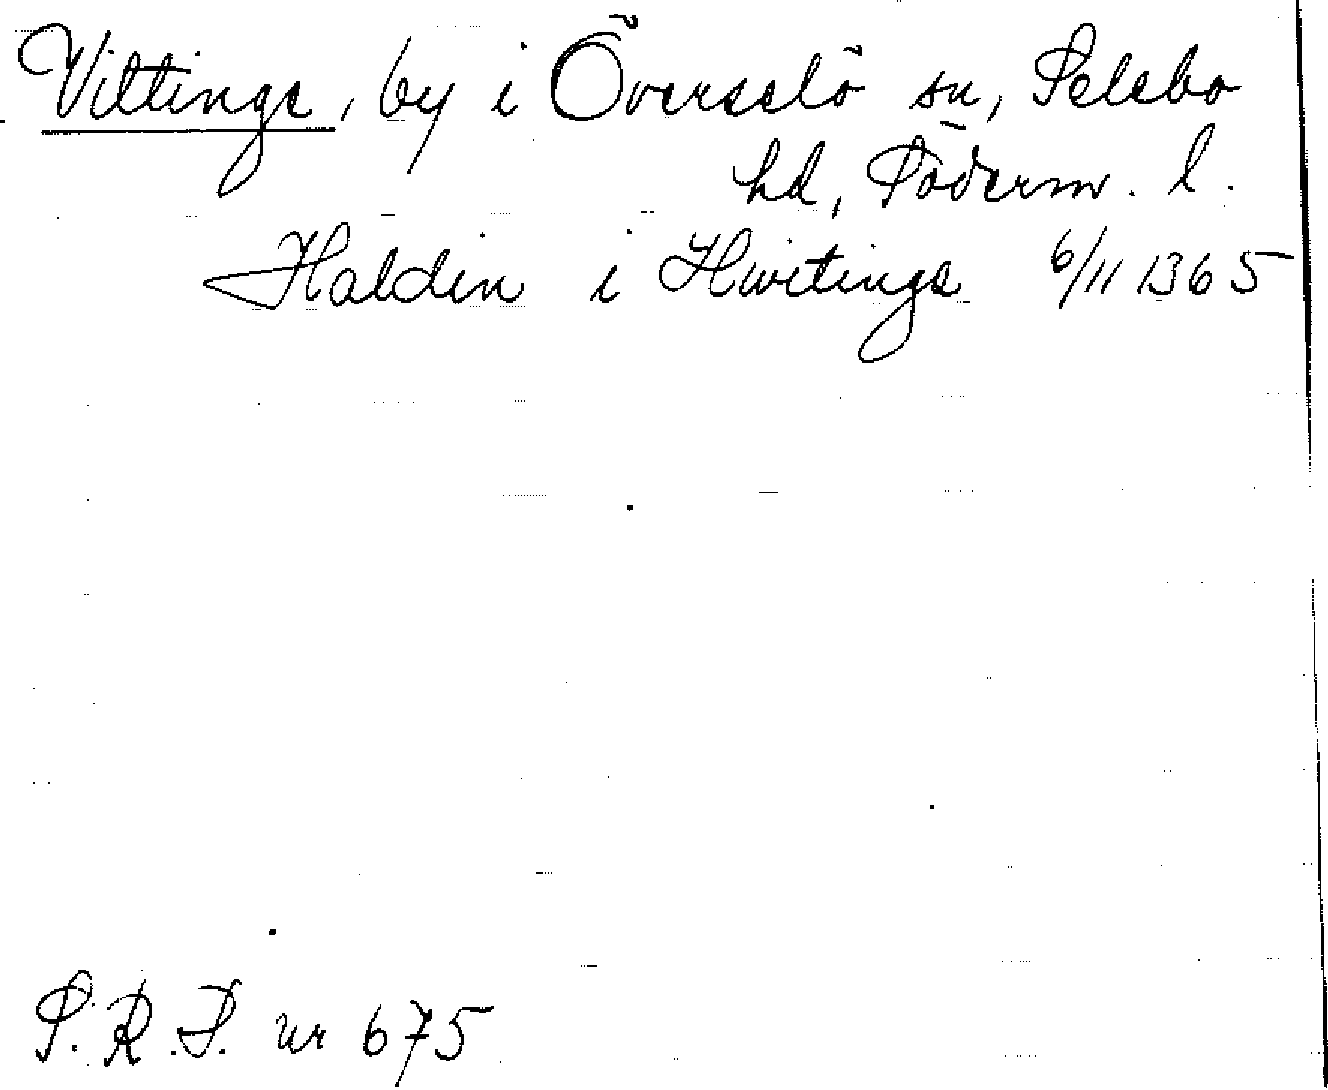 Vittinge, by i Överselö sn, Selebo
hd, Söderm. l.
Haldin i Hwitinge 6/11 1365
S.R.P. nr 675